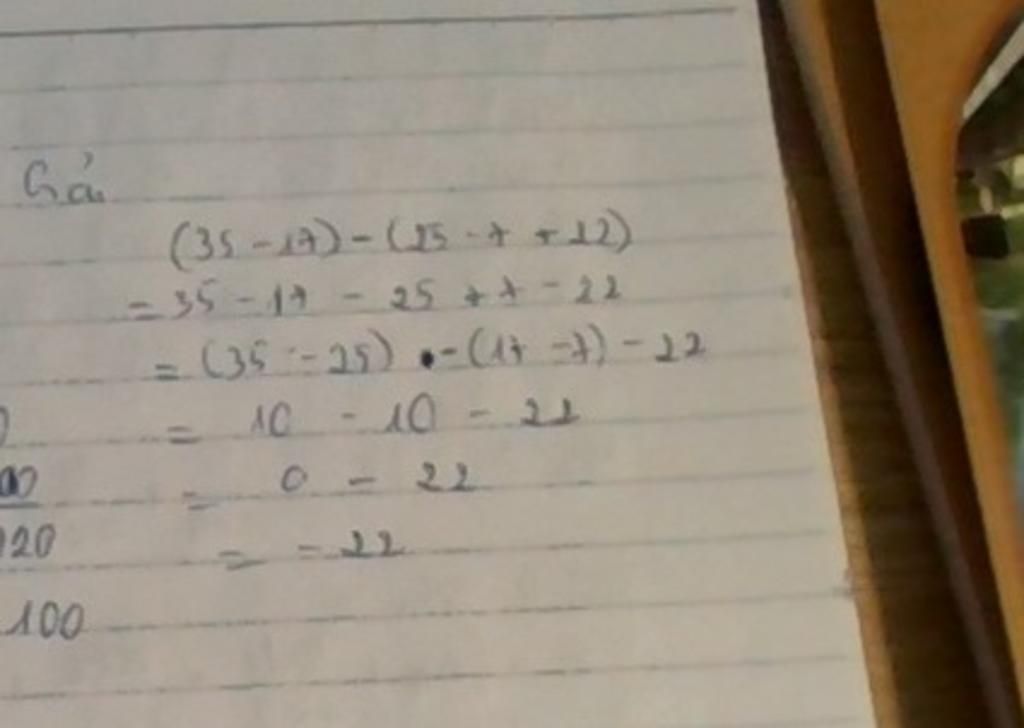 (35 - 17) - (25 - 7 + 22)
= 35 - 17 - 25 + 7 - 22
= (35 - 25) - (17 - 7) - 22
= 10 - 10 - 22
= 0 - 22
120 = - 22
100